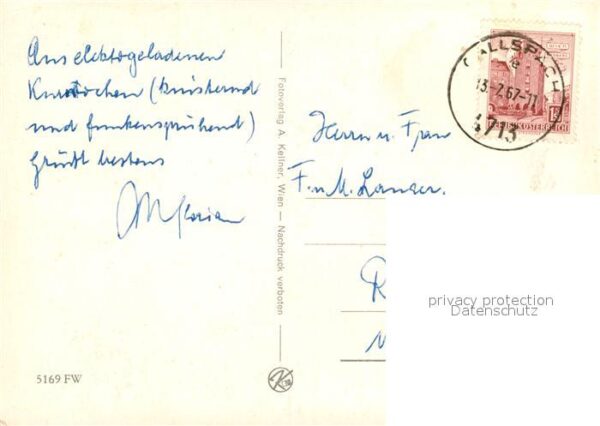 Aus elektrogeladenen
Kurwochen (knisternd
und funkensprühend)
Grüßt bestens
Florian
5169 FW
Fotoverlag A. Kellner, Wien — Nachdruck verboten
GALLSPACH
13.-2.67-11
4713
REPUBLIK ÖSTERREICH
Herrn u. Frau
F. u. M. Langer.
privacy protection
Datenschutz